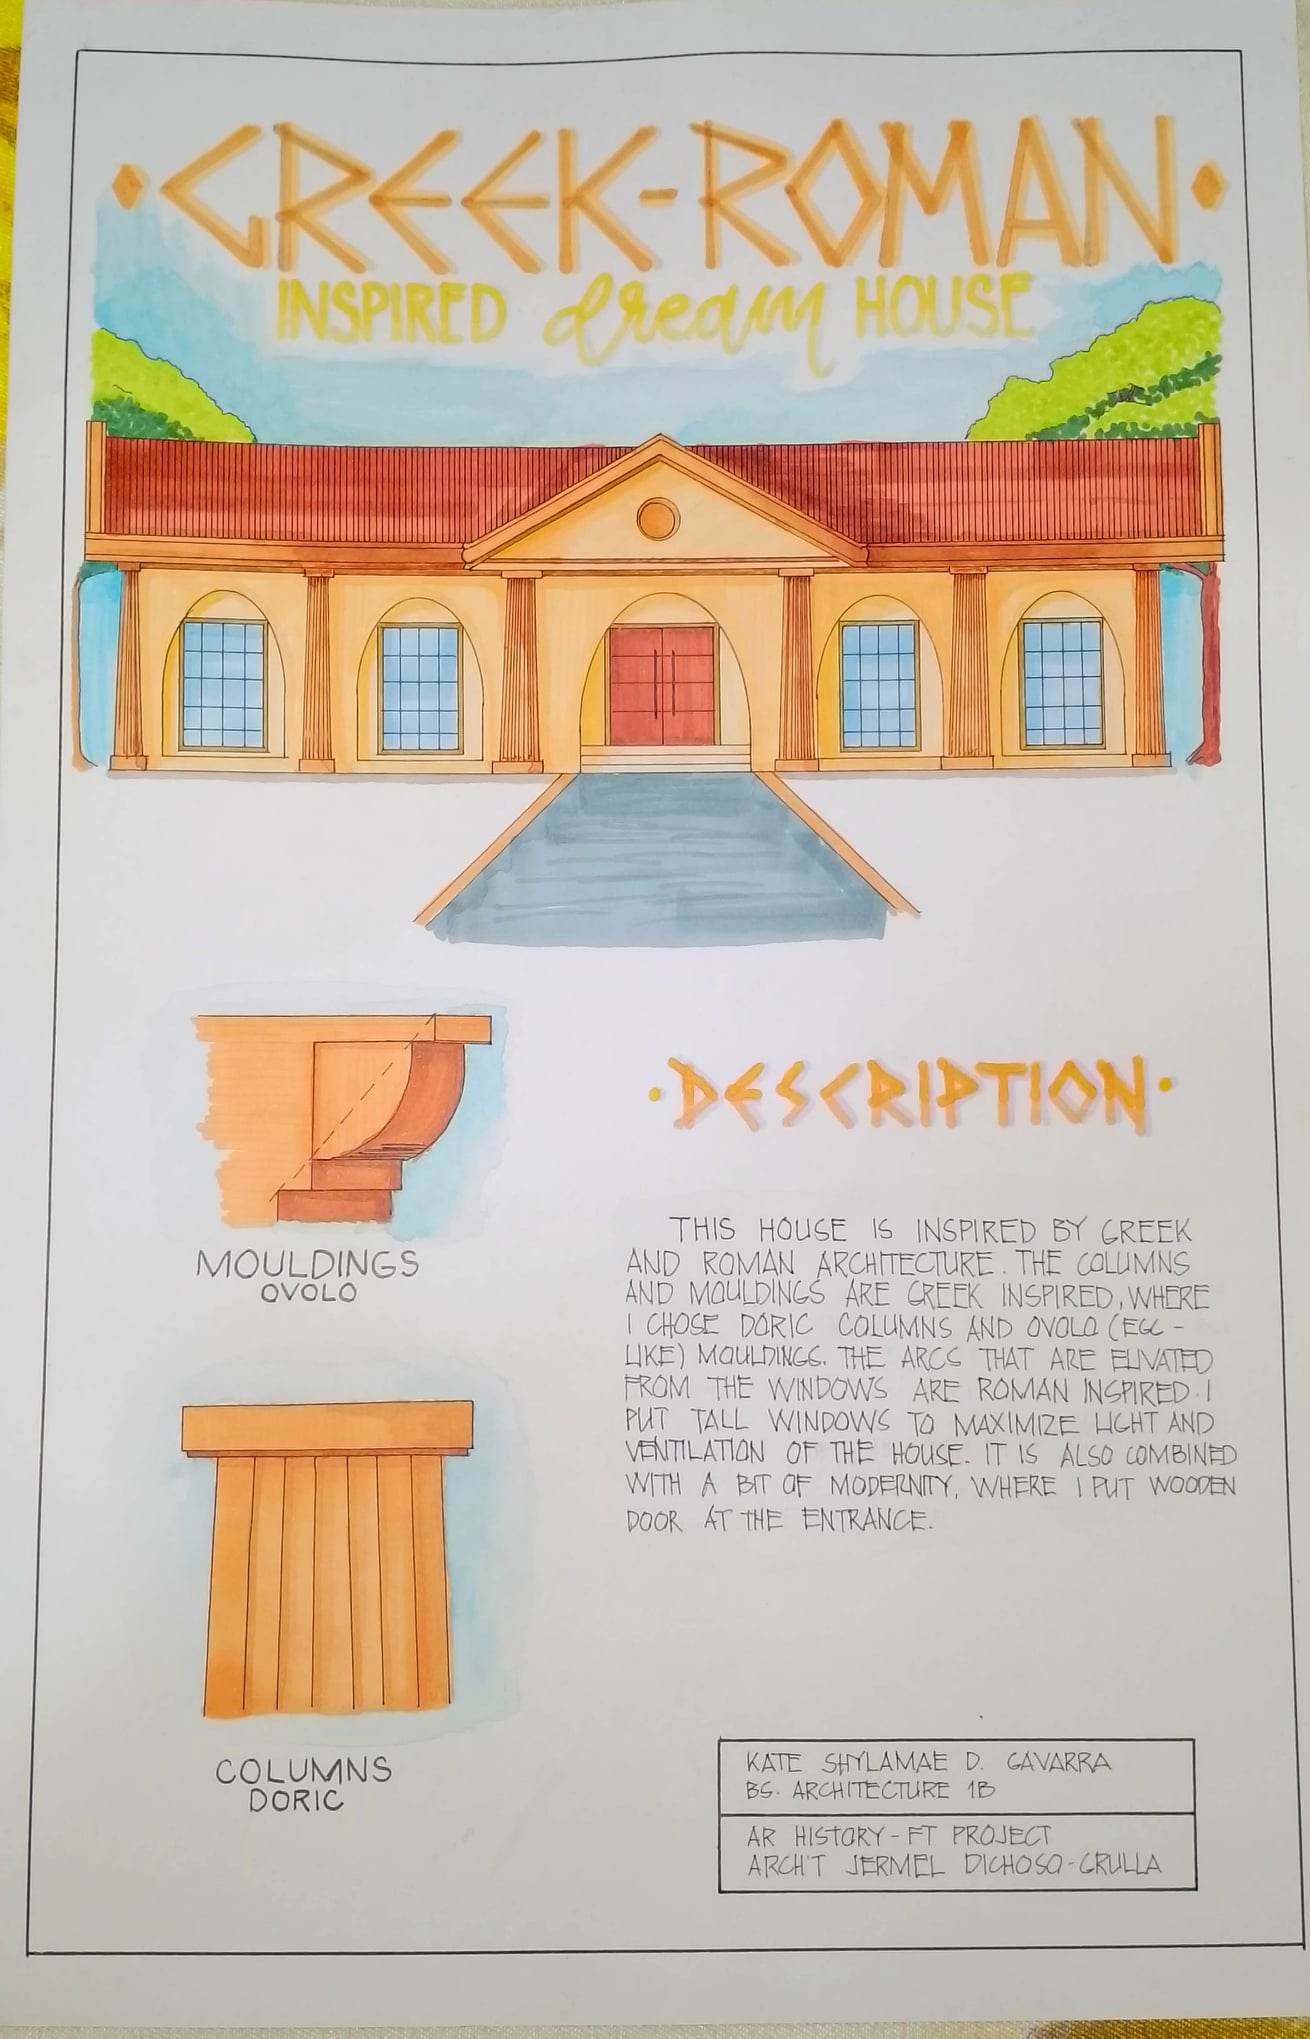 • GREEK-ROMAN •
INSPIRED dream HOUSE
• DESCRIPTION •
THIS HOUSE IS INSPIRED BY GREEK
AND ROMAN ARCHITECTURE. THE COLUMNS
AND MOULDINGS ARE GREEK INSPIRED, WHERE
I CHOSE DORIC COLUMNS AND OVOLO (EGG-
LIKE) MOULDINGS. THE ARCS THAT ARE ELIVATED
FROM THE WINDOWS ARE ROMAN INSPIRED. I
PUT TALL WINDOWS TO MAXIMIZE LIGHT AND
VENTILATION OF THE HOUSE. IT IS ALSO COMBINED
WITH A BIT OF MODERNITY, WHERE I PUT WOODEN
DOOR AT THE ENTRANCE.
MOULDINGS
OVOLO
COLUMNS
DORIC
KATE SHYLAMAE D. GAVARRA
BS. ARCHITECTURE 1B
AR HISTORY - FT PROJECT
ARCH'T JERMEL DICHOSO-GRULLA